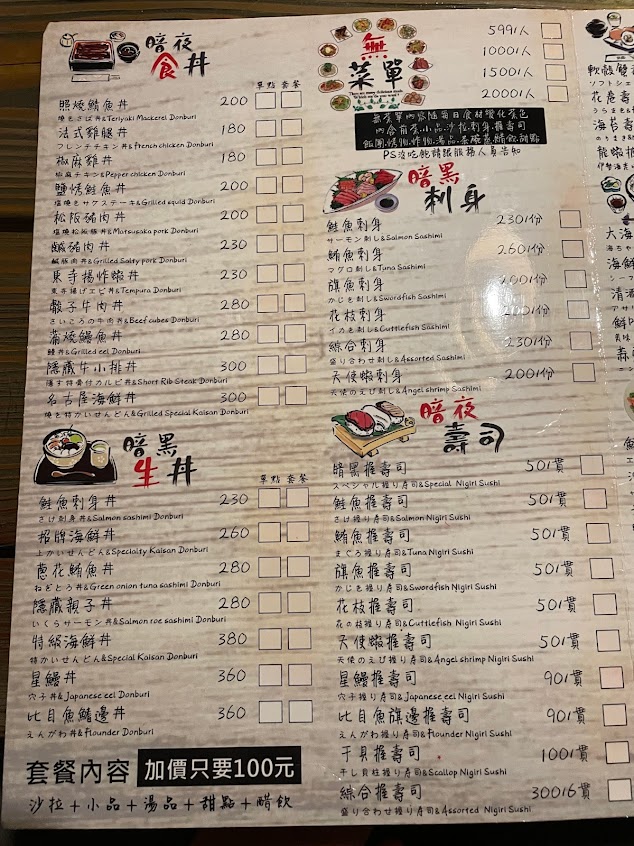 暗夜食丼
單點 套餐
照燒鯖魚丼 200
焼きさば丼&Teriyaki Mackerel Donburi
法式雞腿丼 180
フレンチチキン丼&french chicken Donburi
椒麻雞丼 180
椒麻チキン丼&Pepper chicken Donburi
鹽烤鮭魚丼 200
塩焼きサケステーキ&Grilled squid Donburi
松阪豬肉丼 200
塩焼松阪豚丼&Matsusaka pork Donburi
鹹豬肉丼 230
鹹豚肉丼&Grilled Salty pork Donburi
東寺揚炸蝦丼 230
東寺揚げエビ丼&Tempura Donburi
骰子牛肉丼 280
さいころの牛肉丼&Beef cubes Donburi
蒲燒鰻魚丼 280
鰻丼&Grilled eel Donburi
隱藏牛小排丼 300
隠す特骨付カルビ丼&Short Rib Steak Donburi
名古屋海鮮丼 300
焼き特かいせんどん&Grilled Special Kaisan Donburi
暗黑生丼
單點 套餐
鮭魚刺身丼 230
さけ刺身丼&Salmon sashimi Donburi
招牌海鮮丼 260
上かいせんどん&Specialty Kaisan Donburi
蔥花鮪魚丼 280
ねぎとろ丼&Green onion tuna sashimi Donburi
隱藏親子丼 280
いくらサーモン丼&Salmon roe sashimi Donburi
特級海鮮丼 380
特かいせんどん&Special Kaisan Donburi
星鰻丼 360
穴子丼&Japanese eel Donburi
比目魚鰭邊丼 360
えんがわ丼&flounder Donburi
套餐內容 加價只要100元
沙拉+小品+湯品+甜點+醋飲
無菜單
599/人
1000/人
1500/人
2000/人
無菜單內容隨每日食材變化菜色
內含前菜.小品.沙拉.刺身.握壽司
PS沒吃飽請跟服務人員告知
暗黑刺身
鮭魚刺身 230/份
サーモン刺し&Salmon Sashimi
鮪魚刺身 260/份
マグロ刺し&Tuna Sashimi
旗魚刺身 200/份
かじき刺し&Swordfish Sashimi
花枝刺身 200/份
イカ刺し&Cuttlefish Sashimi
綜合刺身 230/份
盛り合わせ刺し&Assorted Sashimi
天使蝦刺身 200/份
天使のえび刺し&Angel shrimp Sashimi
暗夜壽司
暗黑握壽司 50/貫
スペシャル握り寿司&Special Nigiri Sushi
鮭魚握壽司 50/貫
さけ握り寿司&Salmon Nigiri Sushi
鮪魚握壽司 50/貫
まぐろ握り寿司&Tuna Nigiri Sushi
旗魚握壽司 50/貫
かじき握り寿司&Swordfish Nigiri Sushi
花枝握壽司 50/貫
花の枝握り寿司&Cuttlefish Nigiri Sushi
天使蝦握壽司 50/貫
天使のえび握り寿司&Angel shrimp Nigiri Sushi
星鰻握壽司 90/貫
穴子握り寿司&Japanese eel Nigiri Sushi
比目魚旗邊握壽司 90/貫
えんがわ握り寿司&flounder Nigiri Sushi
干貝握壽司 100/貫
干し貝柱握り寿司&Scallop Nigiri Sushi
綜合握壽司 300/6貫
盛り合わせ握り寿司&Assorted Nigiri Sushi